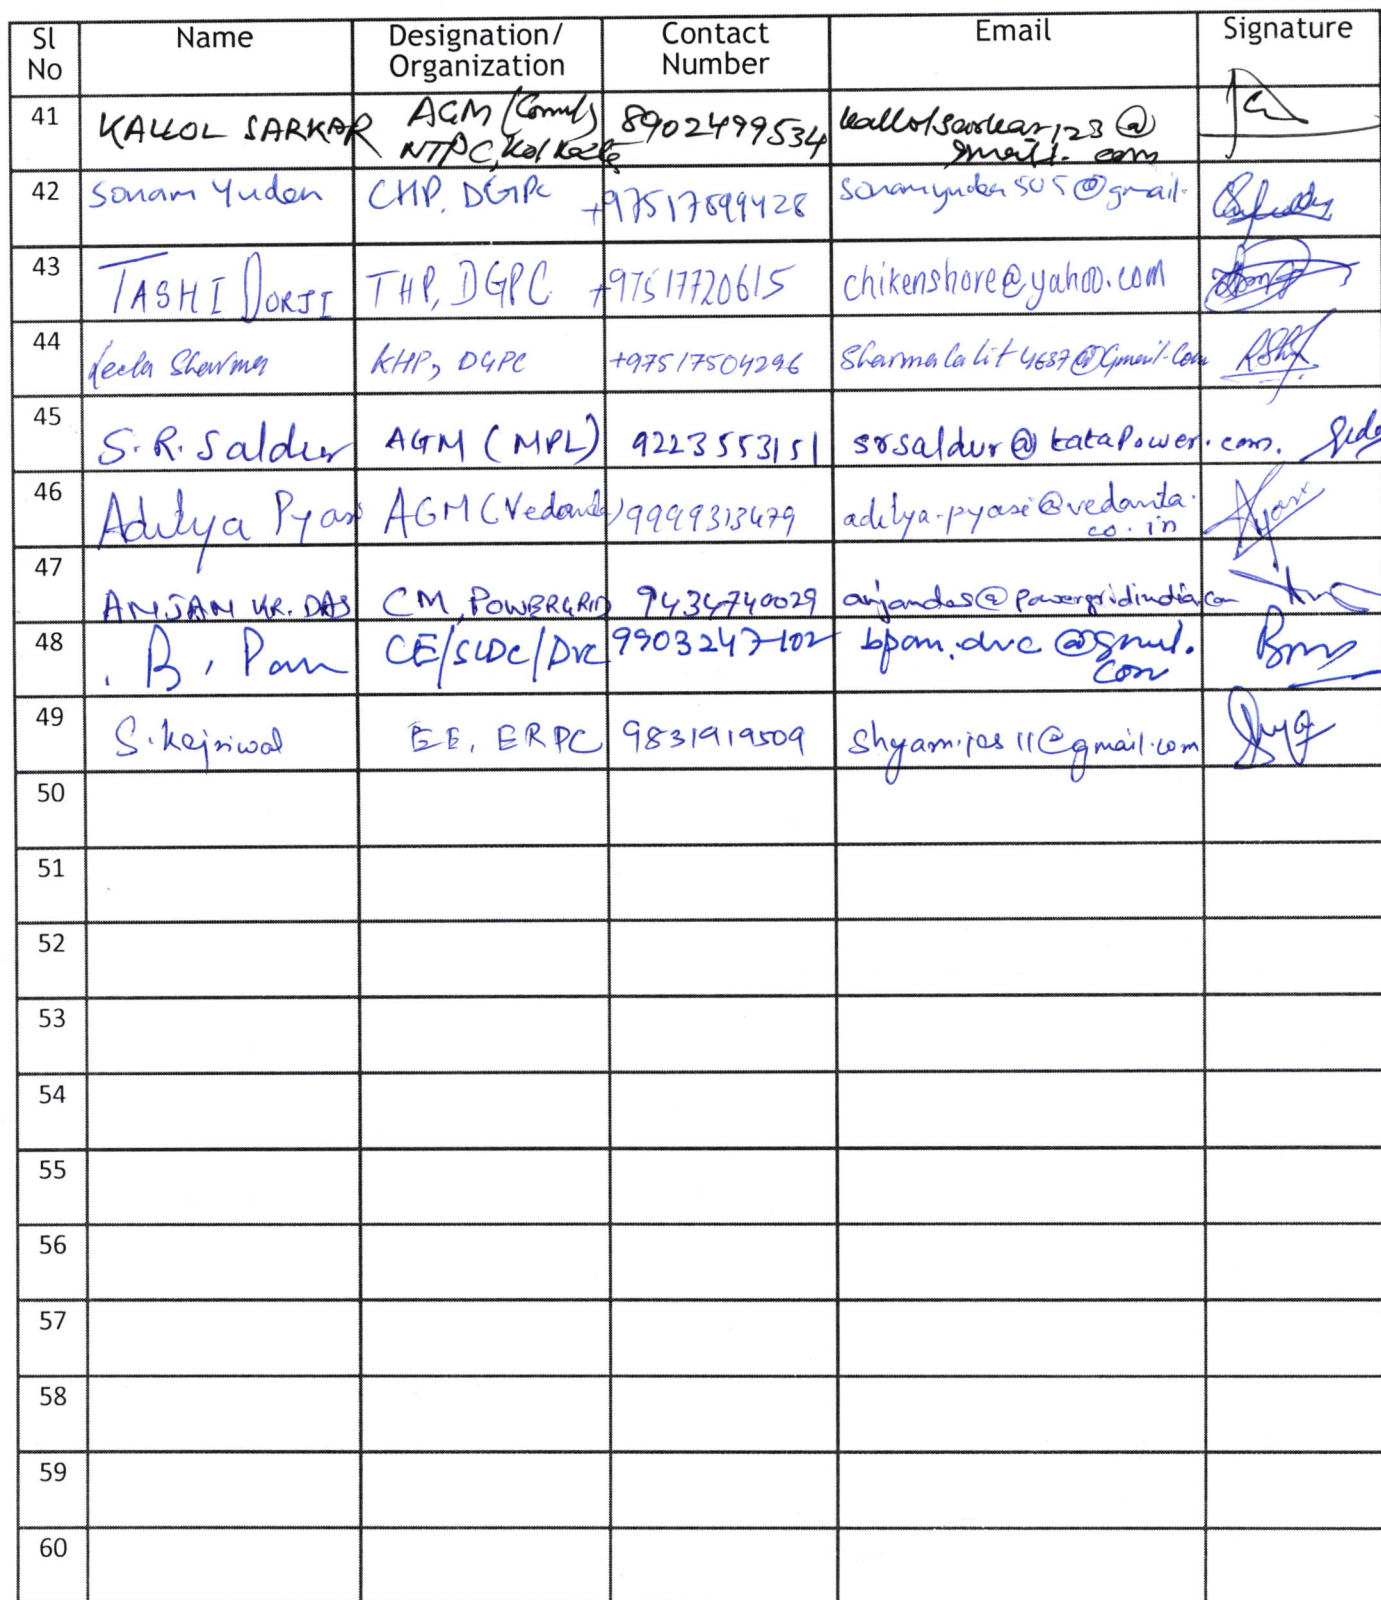 Sl No | Name | Designation/ Organization | Contact Number | Email | Signature
41 | KALLOL SARKAR | AGM (Comml) NTPC, Kolkata | 8902499534 | kallolsarkar123@gmail.com
42 | Sonam Yuden | CHP, DGPC | +97517699428 | sonamyuden505@gmail.
43 | TASHI DORJI | THP, DGPC | +97517720615 | chikenshore@yahoo.com
44 | Leela Sharma | KHP, DGPC | +97517504296 | Sharmalalit4687@Gmail.Com
45 | S.R. Saldur | AGM (MPL) | 9223553151 | srsaldur@tataPower.com.
46 | Aditya Pyasi | AGM (Vedanta) | 9999313479 | aditya.pyasi@vedanta.co.in
47 | ANJAN KR. DAS | CM, POWERGRID | 9434740029 | anjandas@powergridindia.com
48 | B. Pan | CE/SLDC/DVC | 9903247102 | bpan.dvc@gmail.com
49 | S. Kejriwal | EE, ERPC | 9831919509 | Shyam.ies11@gmail.com
50
51
52
53
54
55
56
57
58
59
60